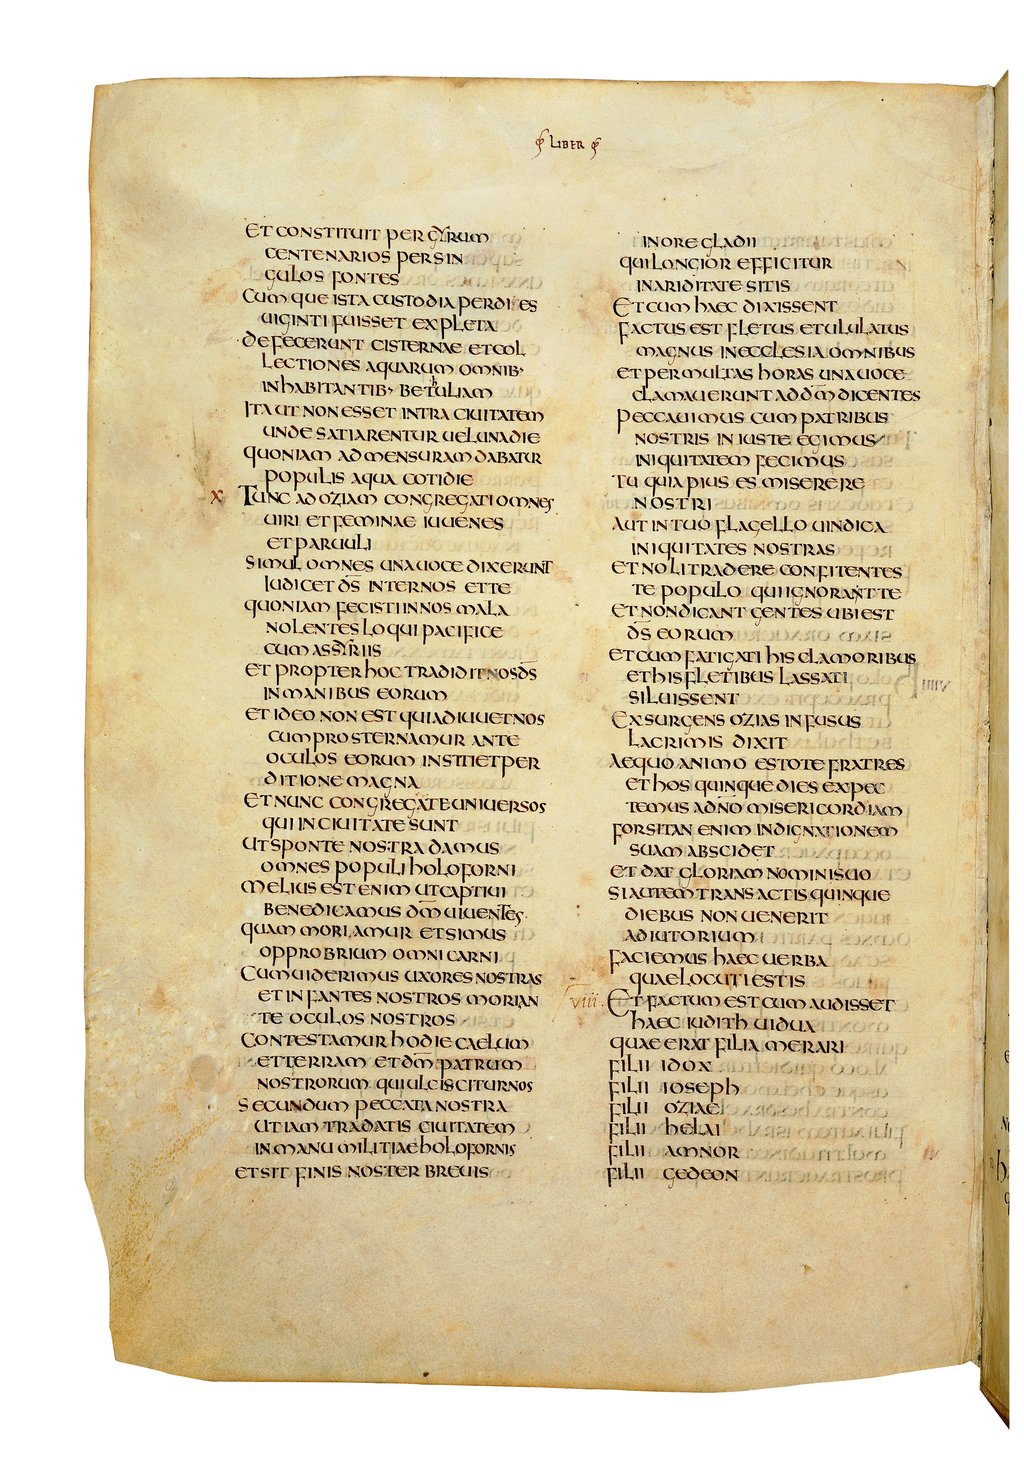 LIBER
ET CONSTITUIT PER GYRUM
CENTENARIOS PER SIN
GULOS FONTES
CUMQUE ISTA CUSTODIA PER DIES
UIGINTI FUISSET EXPLETA
DEFECERUNT CISTERNAE ET COL
LECTIONES AQUARUM OMNIB·
INHABITANTIB· BETULIAM
ITA UT NON ESSET INTRA CIUITATEM
UNDE SATIARENTUR UEL UNA DIE
QUONIAM AD MENSURAM DABATUR
POPULIS AQUA COTIDIE
X TUNC AD OZIAM CONGREGATI OMNES
UIRI ET FEMINAE IUUENES
ET PARUULI
SIMUL OMNES UNA UOCE DIXERUNT
IUDICET D̄S INTER NOS ET TE
QUONIAM FECISTI IN NOS MALA
NOLENTES LOQUI PACIFICE
CUM ASSYRIIS
ET PROPTER HOC TRADIDIT NOS D̄S
IN MANIBUS EORUM
ET IDEO NON EST QUI ADIUUET NOS
CUM PROSTERNAMUR ANTE
OCULOS EORUM IN SITI ET PER
DITIONE MAGNA
ET NUNC CONGREGATE UNIUERSOS
QUI IN CIUITATE SUNT
UT SPONTE NOSTRA DAMUS
OMNES POPULI HOLOFORNI
MELIUS EST ENIM UT CAPTIUI
BENEDICAMUS D̄M UIUENTES
QUAM MORIAMUR ET SIMUS
OPPROBRIUM OMNI CARNI
CUM UIDERIMUS UXORES NOSTRAS
ET INFANTES NOSTROS MORI AN
TE OCULOS NOSTROS
CONTESTAMUR HODIE CAELUM
ET TERRAM ET D̄M PATRUM
NOSTRORUM QUI ULCISCITUR NOS
SECUNDUM PECCATA NOSTRA
UT IAM TRADATIS CIUITATEM
IN MANU MILITIAE HOLOFORNIS
ET SIT FINIS NOSTER BREUIS
IN ORE GLADII
QUI LONGIOR EFFICITUR
IN ARIDITATE SITIS
ET CUM HAEC DIXISSENT
FACTUS EST FLETUS ET ULULATUS
MAGNUS IN ECCLESIA OMNIBUS
ET PER MULTAS HORAS UNA UOCE
CLAMAUERUNT AD D̄M DICENTES
PECCAUIMUS CUM PATRIBUS
NOSTRIS INIUSTE EGIMUS
INIQUITATEM FECIMUS
TU QUIA PIUS ES MISERERE
NOSTRI
AUT IN TUO FLAGELLO UINDICA
INIQUITATES NOSTRAS
ET NOLI TRADERE CONFITENTES
TE POPULO QUI IGNORANT TE
ET NON DICANT GENTES UBI EST
D̄S EORUM
ET CUM FATIGATI HIS CLAMORIBUS
ET HIS FLETIBUS LASSATI
SILUISSENT
EXSURGENS OZIAS INFUSUS
LACRIMIS DIXIT
AEQUO ANIMO ESTOTE FRATRES
ET HOS QUINQUE DIES EXPEC
TEMUS A DN̄O MISERICORDIAM
FORSITAN ENIM INDIGNATIONEM
SUAM ABSCIDET
ET DAT GLORIAM NOMINI SUO
SI AUTEM TRANSACTIS QUINQUE
DIEBUS NON UENERIT
ADIUTORIUM
FACIEMUS HAEC UERBA
QUAE LOCUTI ESTIS
VIII ET FACTUM EST CUM AUDISSET
HAEC IUDITH UIDUA
QUAE ERAT FILIA MERARI
FILII IDOX
FILII IOSEPH
FILII OZIAE
FILII HELAI
FILII AMNOR
FILII GEDEON